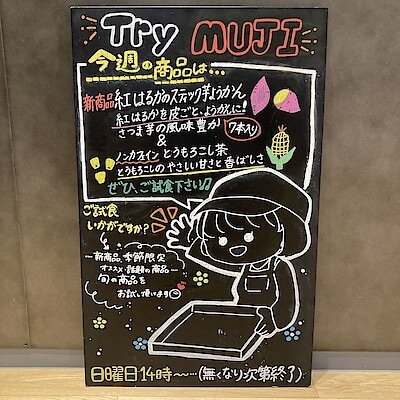 Try MUJI
今週の商品は…
新商品 紅はるかのスティック芋ようかん
紅はるかを皮ごと、ようかんに!
さつま芋の風味豊か 7本入り
&
ノンカフェイン とうもろこし茶
とうもろこしの やさしい甘さと香ばしさ
ぜひ、ご試食下さい♪
ご試食
いかがですか?
新商品、季節限定
オススメ・話題の商品
旬の商品を
お試し頂けます
日曜日14時〜…(無くなり次第終了)